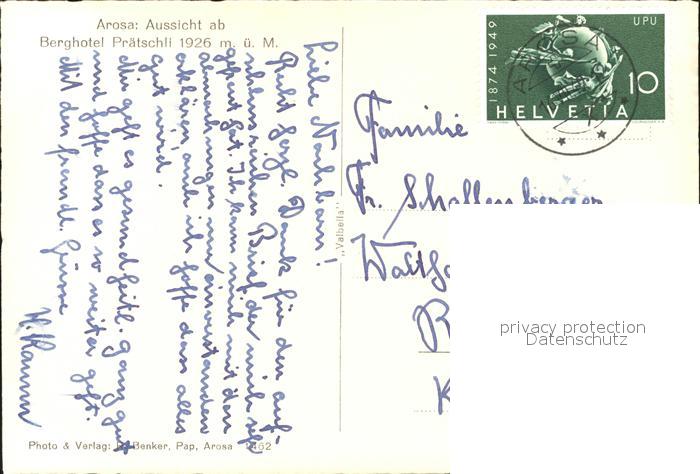 Arosa: Aussicht ab
Berghotel Prätschli 1926 m. ü. M.
Liebe Nachbarn!
Recht herzl. Dank für den auf-
schlussreichen Brief der mich sehr
gefreut hat. Ich kann mich mit den
abmachungen nur einverstanden
erklären, auch ich hoffe dass alles
gut wird.
Mir geht es gesundheitl. ganz gut
und hoffe dass es so weiter geht.
Mit den freundl. Grüsse
Photo & Verlag: Benker, Pap, Arosa
„Valbella"
1874 1949
UPU
10
HELVETIA
AROSA
Familie
Fr. Schallenberger
privacy protection
Datenschutz